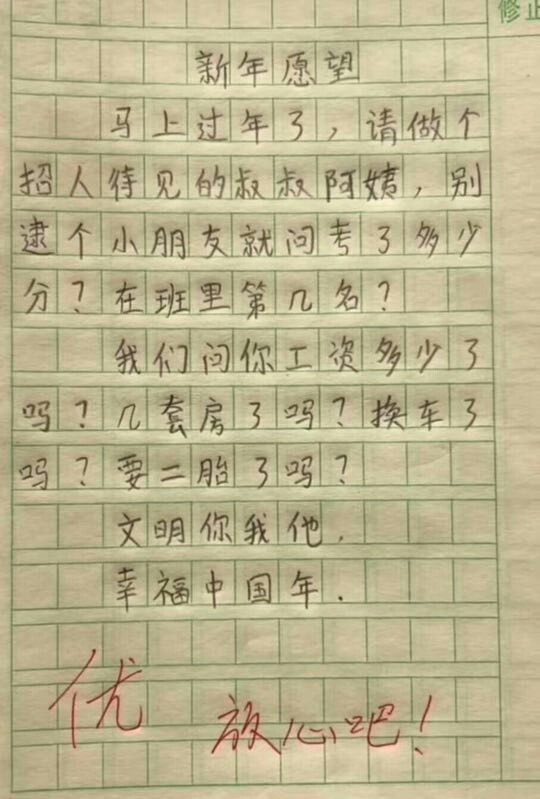 修正
新年愿望
马上过年了，请做个
招人待见的叔叔阿姨，别
逮个小朋友就问考了多少
分？在班里第几名？
我们问你工资多少了
吗？几套房了吗？换车了
吗？要二胎了吗？
文明你我他，
幸福中国年．
优 放心吧！